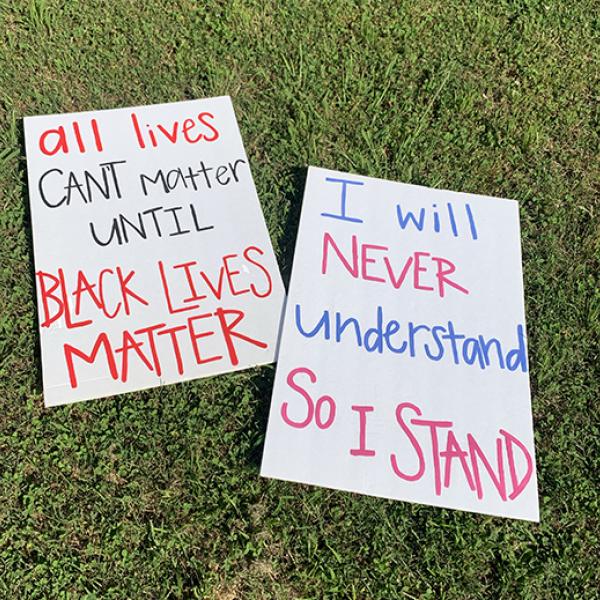 all lives
CAN'T Matter
UNTIL
BLACK LIVES
MATTER
I will
NEVER
understand
So I STAND